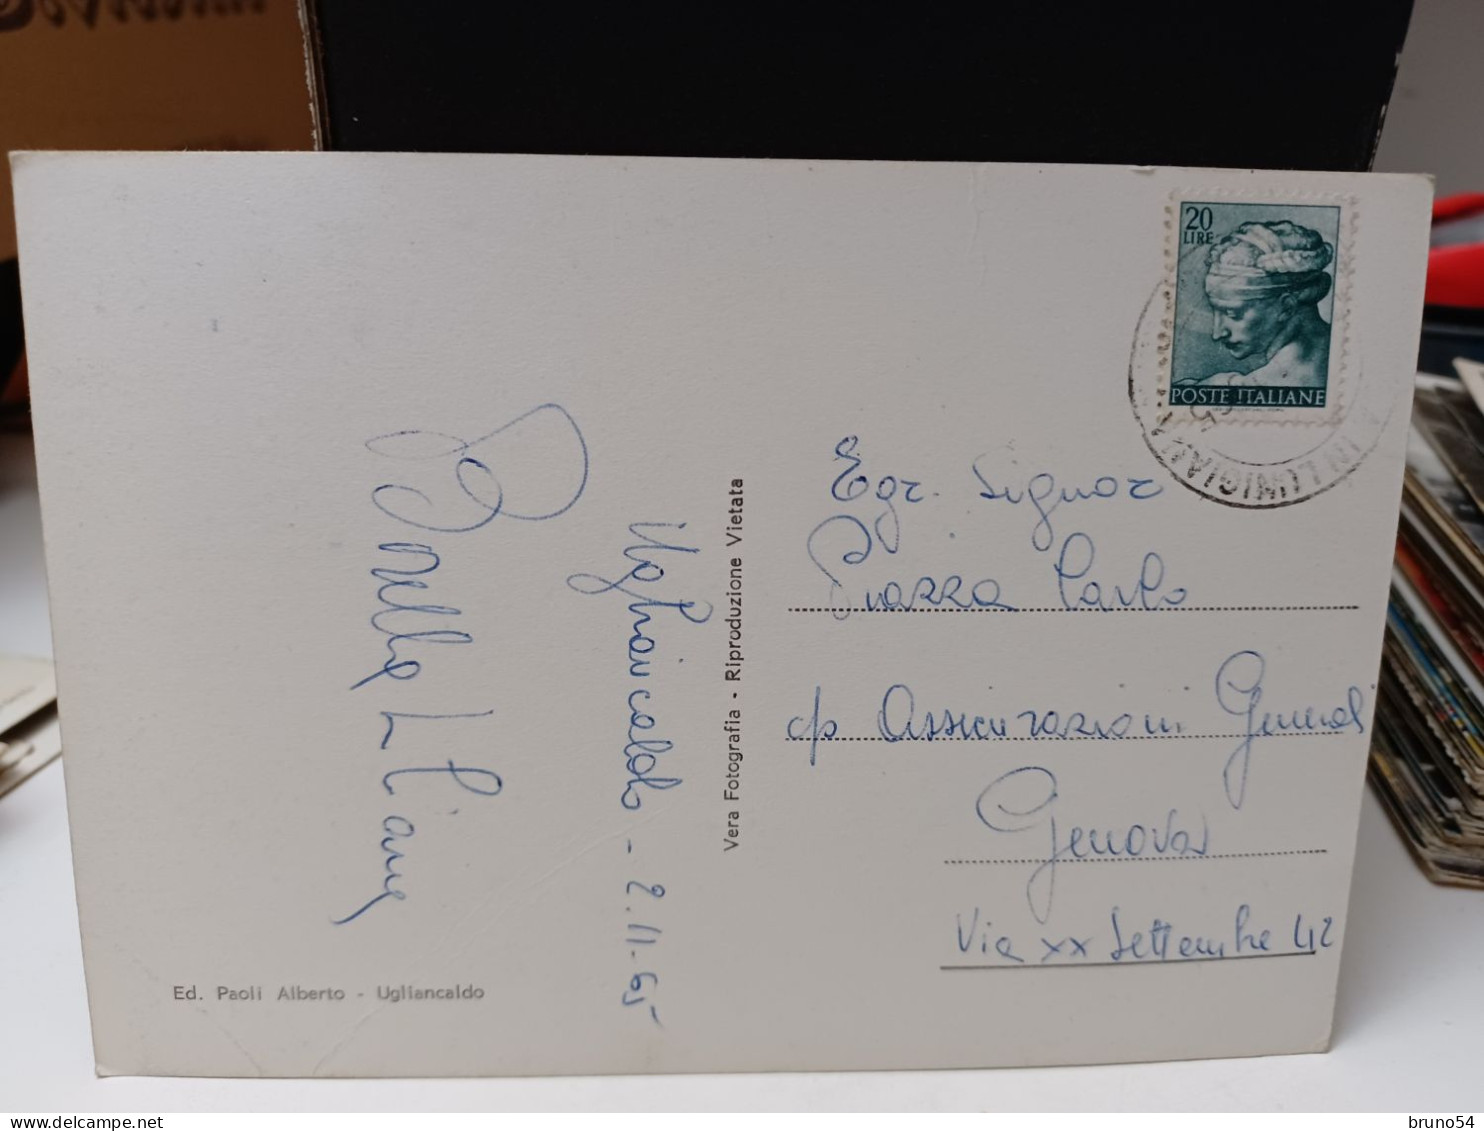 20
LIRE
POSTE ITALIANE
IN LUNIGIANA
Egr. Signor
Piazza Carlo
c/o Assicurazioni Generali
Genova
Via XX Settembre 42
Vera Fotografia - Riproduzione Vietata
Ugliancaldo - 2.11.65
Ed. Paoli Alberto - Ugliancaldo
bruno54